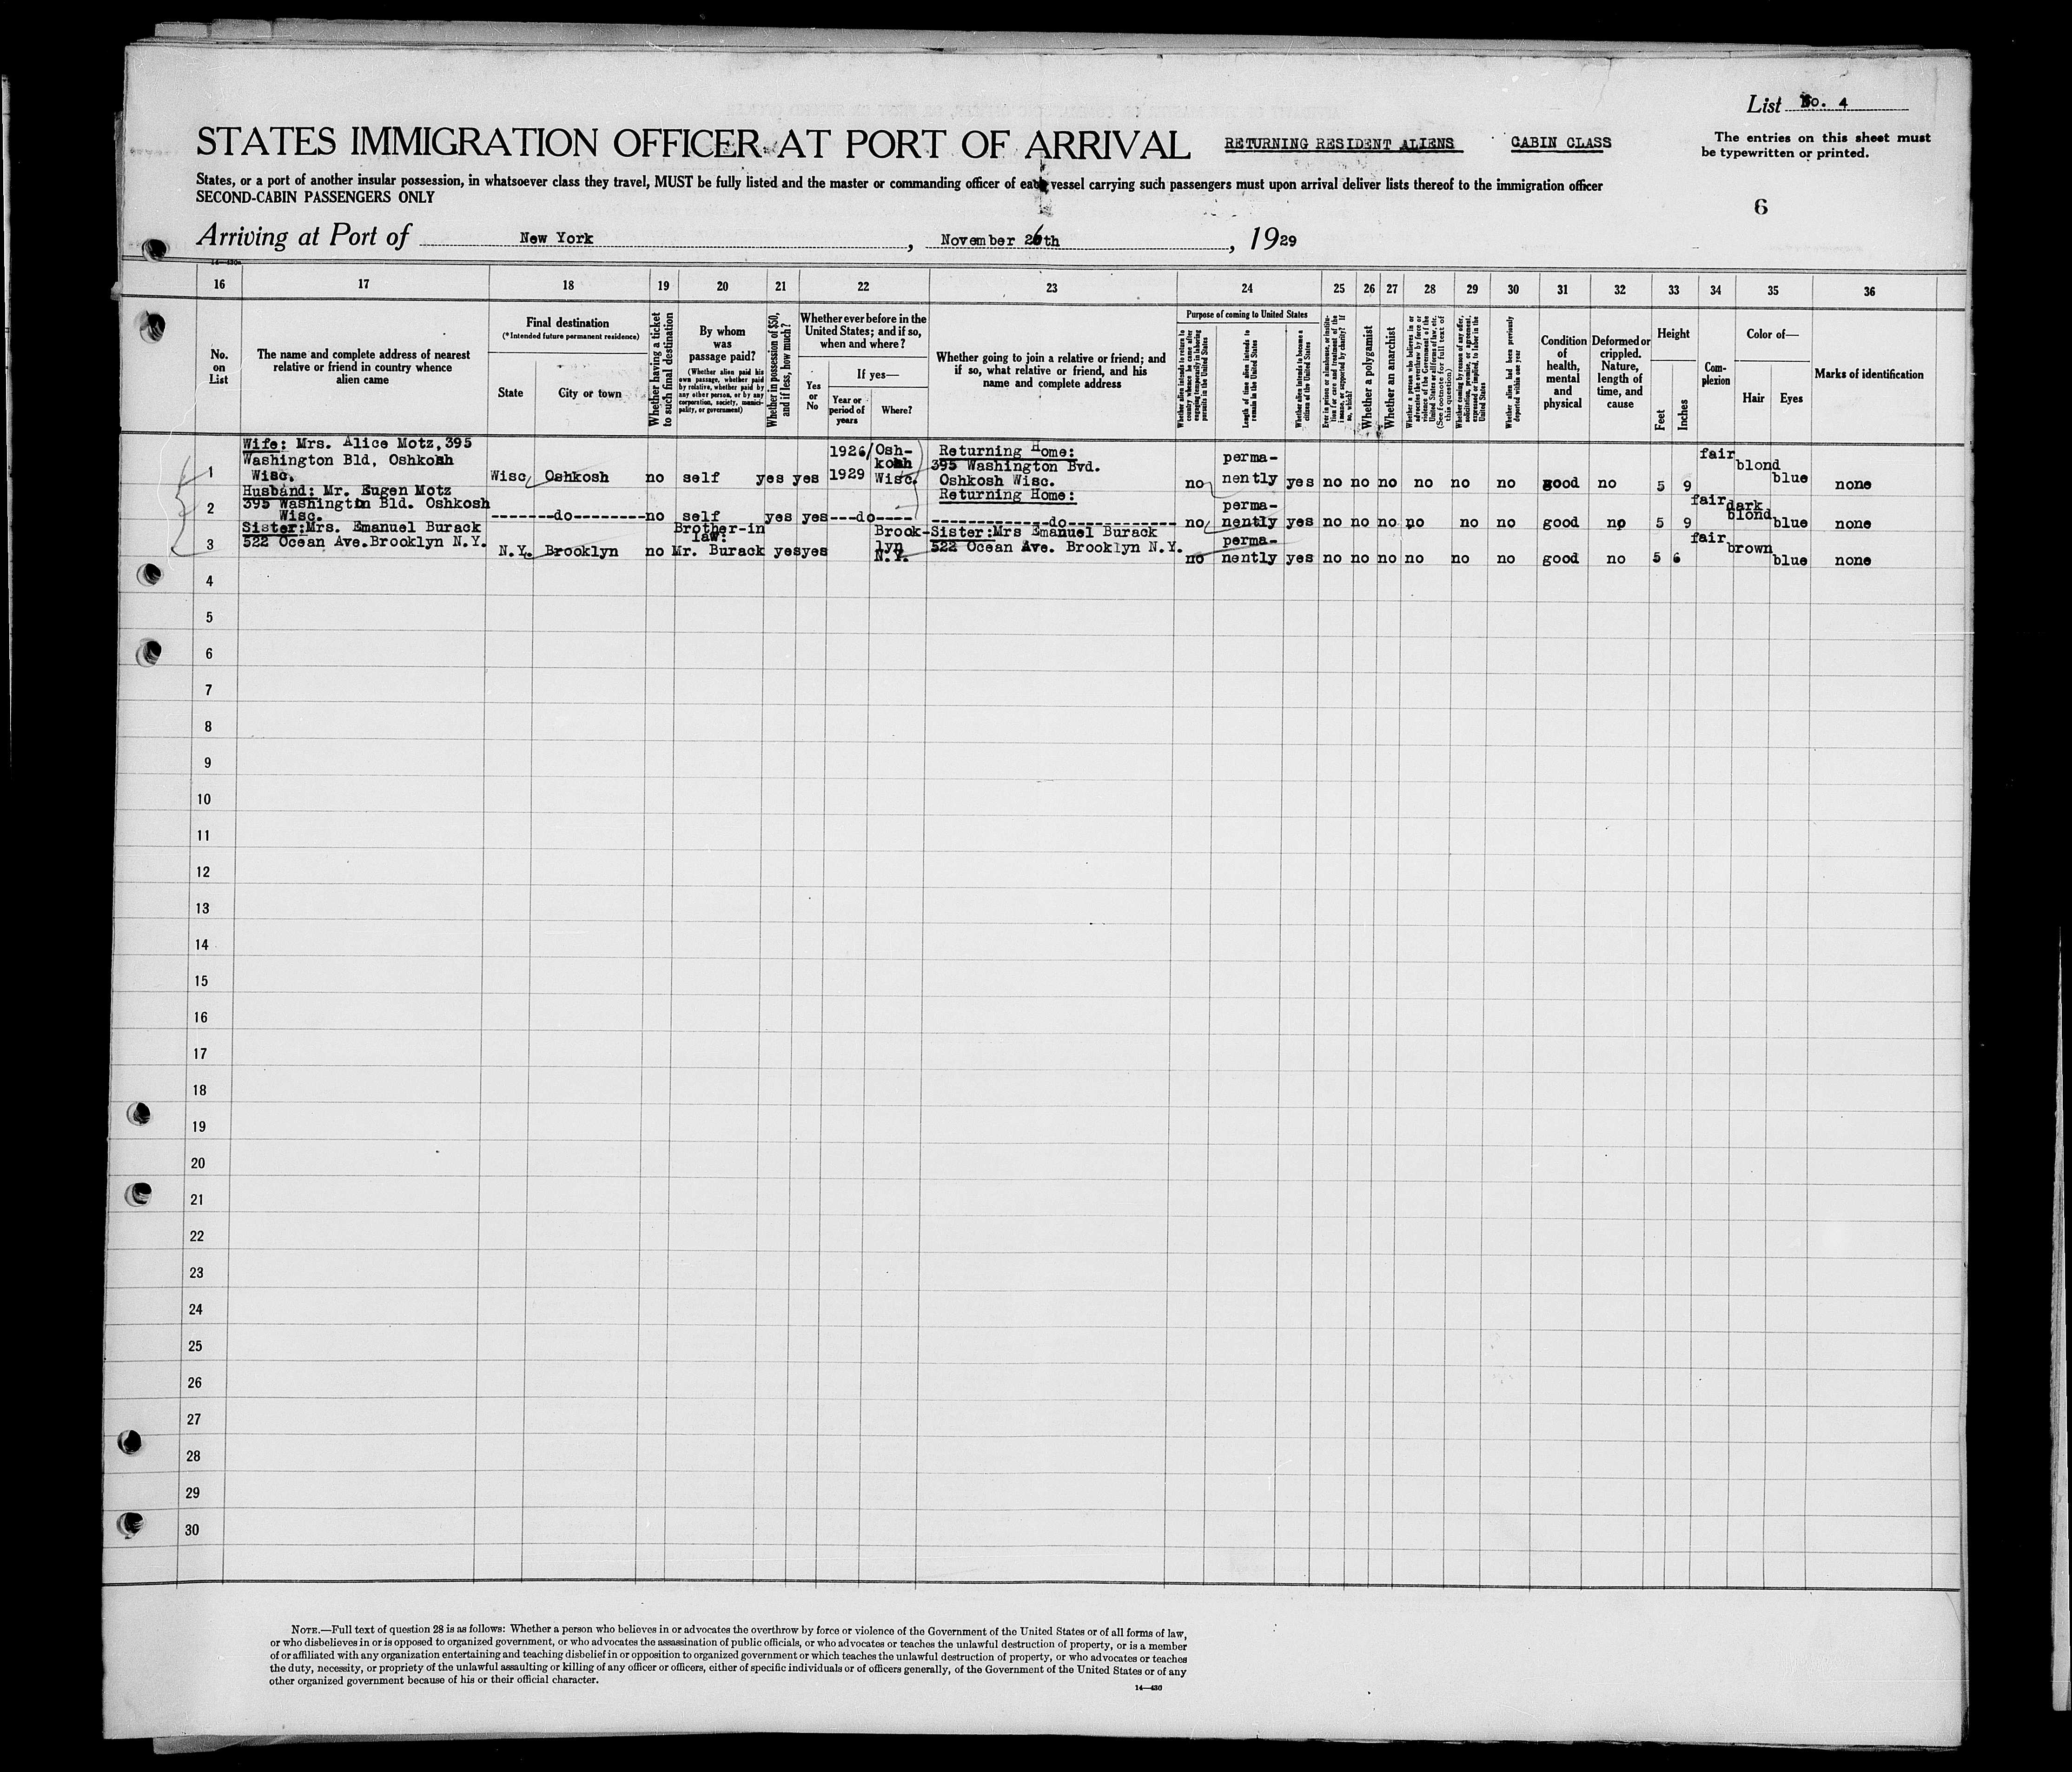 List No. 4
STATES IMMIGRATION OFFICER AT PORT OF ARRIVAL RETURNING RESIDENT ALIENS CABIN CLASS
The entries on this sheet must
be typewritten or printed.
States, or a port of another insular possession, in whatsoever class they travel, MUST be fully listed and the master or commanding officer of each vessel carrying such passengers must upon arrival deliver lists thereof to the immigration officer
SECOND-CABIN PASSENGERS ONLY
6
Arriving at Port of New York, November 26th, 1929
14—430
16 17 18 19 20 21 22 23 24 25 26 27 28 29 30 31 32 33 34 35 36
No.
on
List
The name and complete address of nearest
relative or friend in country whence
alien came
Final destination
(*Intended future permanent residence)
State
City or town
Whether having a ticket
to such final destination
By whom
was
passage paid?
(Whether alien paid his
own passage, whether paid
by relative, whether paid by
any other person, or by any
corporation, society, munici-
pality, or government)
Whether in possession of $50,
and if less, how much?
Whether ever before in the
United States; and if so,
when and where?
Yes
or
No
If yes—
Year or
period of
years
Where?
Whether going to join a relative or friend; and
if so, what relative or friend, and his
name and complete address
Purpose of coming to United States
Whether alien intends to return to
country whence he came after
engaging temporarily in laboring
pursuits in the United States
Length of time alien intends to
remain in the United States
Whether alien intends to become a
citizen of the United States
Ever in prison or almshouse, or institu-
tion for care and treatment of the
insane, or supported by charity? If
so, which?
Whether a polygamist
Whether an anarchist
Whether a person who believes in or
advocates the overthrow by force or
violence of the Government of the
United States or all forms of law, etc.
(See footnote for full text of
this question)
Whether coming by reason of any offer,
solicitation, promise, or agreement,
expressed or implied, to labor in the
United States
Whether alien had been previously
deported within one year
Condition
of
health,
mental
and
physical
Deformed or
crippled.
Nature,
length of
time, and
cause
Height
Feet
Inches
Com-
plexion
Color of—
Hair
Eyes
Marks of identification
1
Wife: Mrs. Alice Motz, 395
Washington Bld, Oshkosh
Wisc.
Wisc Oshkosh no self yes yes
1926/
1929
Osh-
kosh
Wisc.
Returning Home:
395 Washington Bvd.
Oshkosh Wisc.
no
perma-
nently
yes no no no no no no good no 5 9 fair blond blue none
2
Husband: Mr. Eugen Motz
395 Washington Bld. Oshkosh
Wisc.
-------do--------no self yes yes---do----
Returning Home:
-------------do------------ no
perma-
nently
yes no no no no no no good no 5 9 fair
dark
blond
blue none
3
Sister: Mrs. Emanuel Burack
522 Ocean Ave. Brooklyn N.Y.
N.Y. Brooklyn no
Brother-in
law:
Mr. Burack
yes yes
Brook-
lyn
N.Y.
Sister: Mrs Emanuel Burack
522 Ocean Ave. Brooklyn N.Y.
no
perma-
nently
yes no no no no no no good no 5 6 fair brown blue none
4
5
6
7
8
9
10
11
12
13
14
15
16
17
18
19
20
21
22
23
24
25
26
27
28
29
30
NOTE.—Full text of question 28 is as follows: Whether a person who believes in or advocates the overthrow by force or violence of the Government of the United States or of all forms of law,
or who disbelieves in or is opposed to organized government, or who advocates the assassination of public officials, or who advocates or teaches the unlawful destruction of property, or is a member
of or affiliated with any organization entertaining and teaching disbelief in or opposition to organized government or which teaches the unlawful destruction of property, or who advocates or teaches
the duty, necessity, or propriety of the unlawful assaulting or killing of any officer or officers, either of specific individuals or of officers generally, of the Government of the United States or of any
other organized government because of his or their official character.
14—430